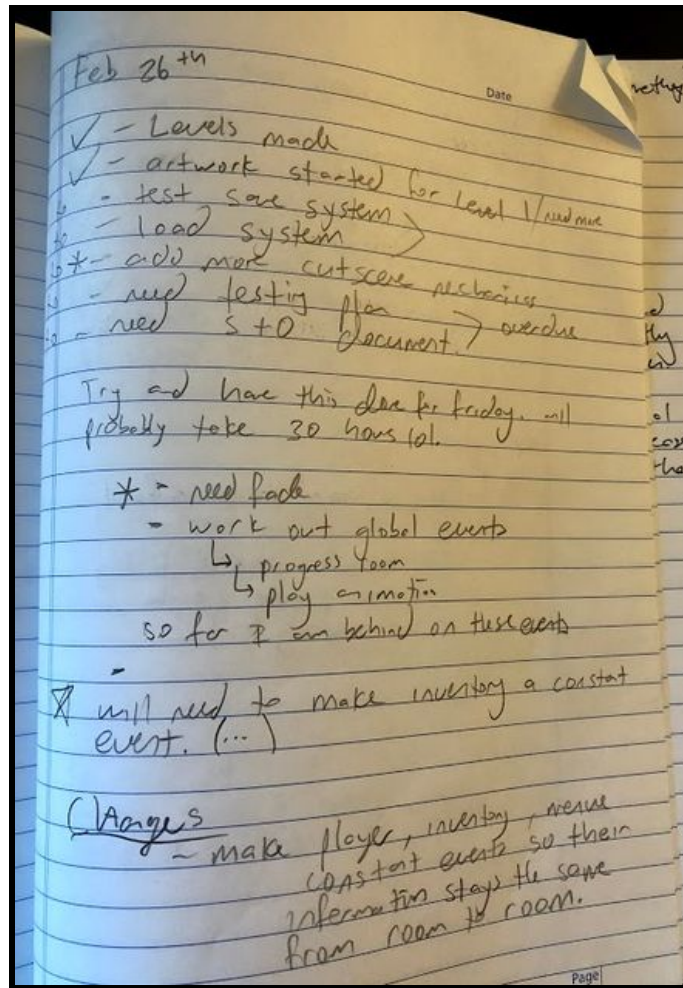 Feb 26th
Date
✓ - Levels made
✓ - artwork started for Level 1/need more
- test save system
- load system
* - add more cutscene mechanics
- need testing plan
- need S+O document. > overdue
Try and have this done for friday. will
probably take 30 hours lol.
* - need fade
- work out global events
↳ progress room
↳ play animation
so far I am behind on these events
-
will need to make inventory a constant
event. (...)
Changes
- make player, inventory, menus
constant events so their
information stays the same
from room to room.
Page